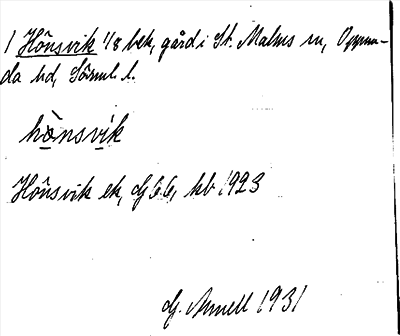 1 Hönsvik 1/8 bek, gård i St. Malms sn, Oppun-
da hd, Sörml. l.
hönsvik
Hönsvik ek, dj 66, kb 1923
dj. Arnell 1931